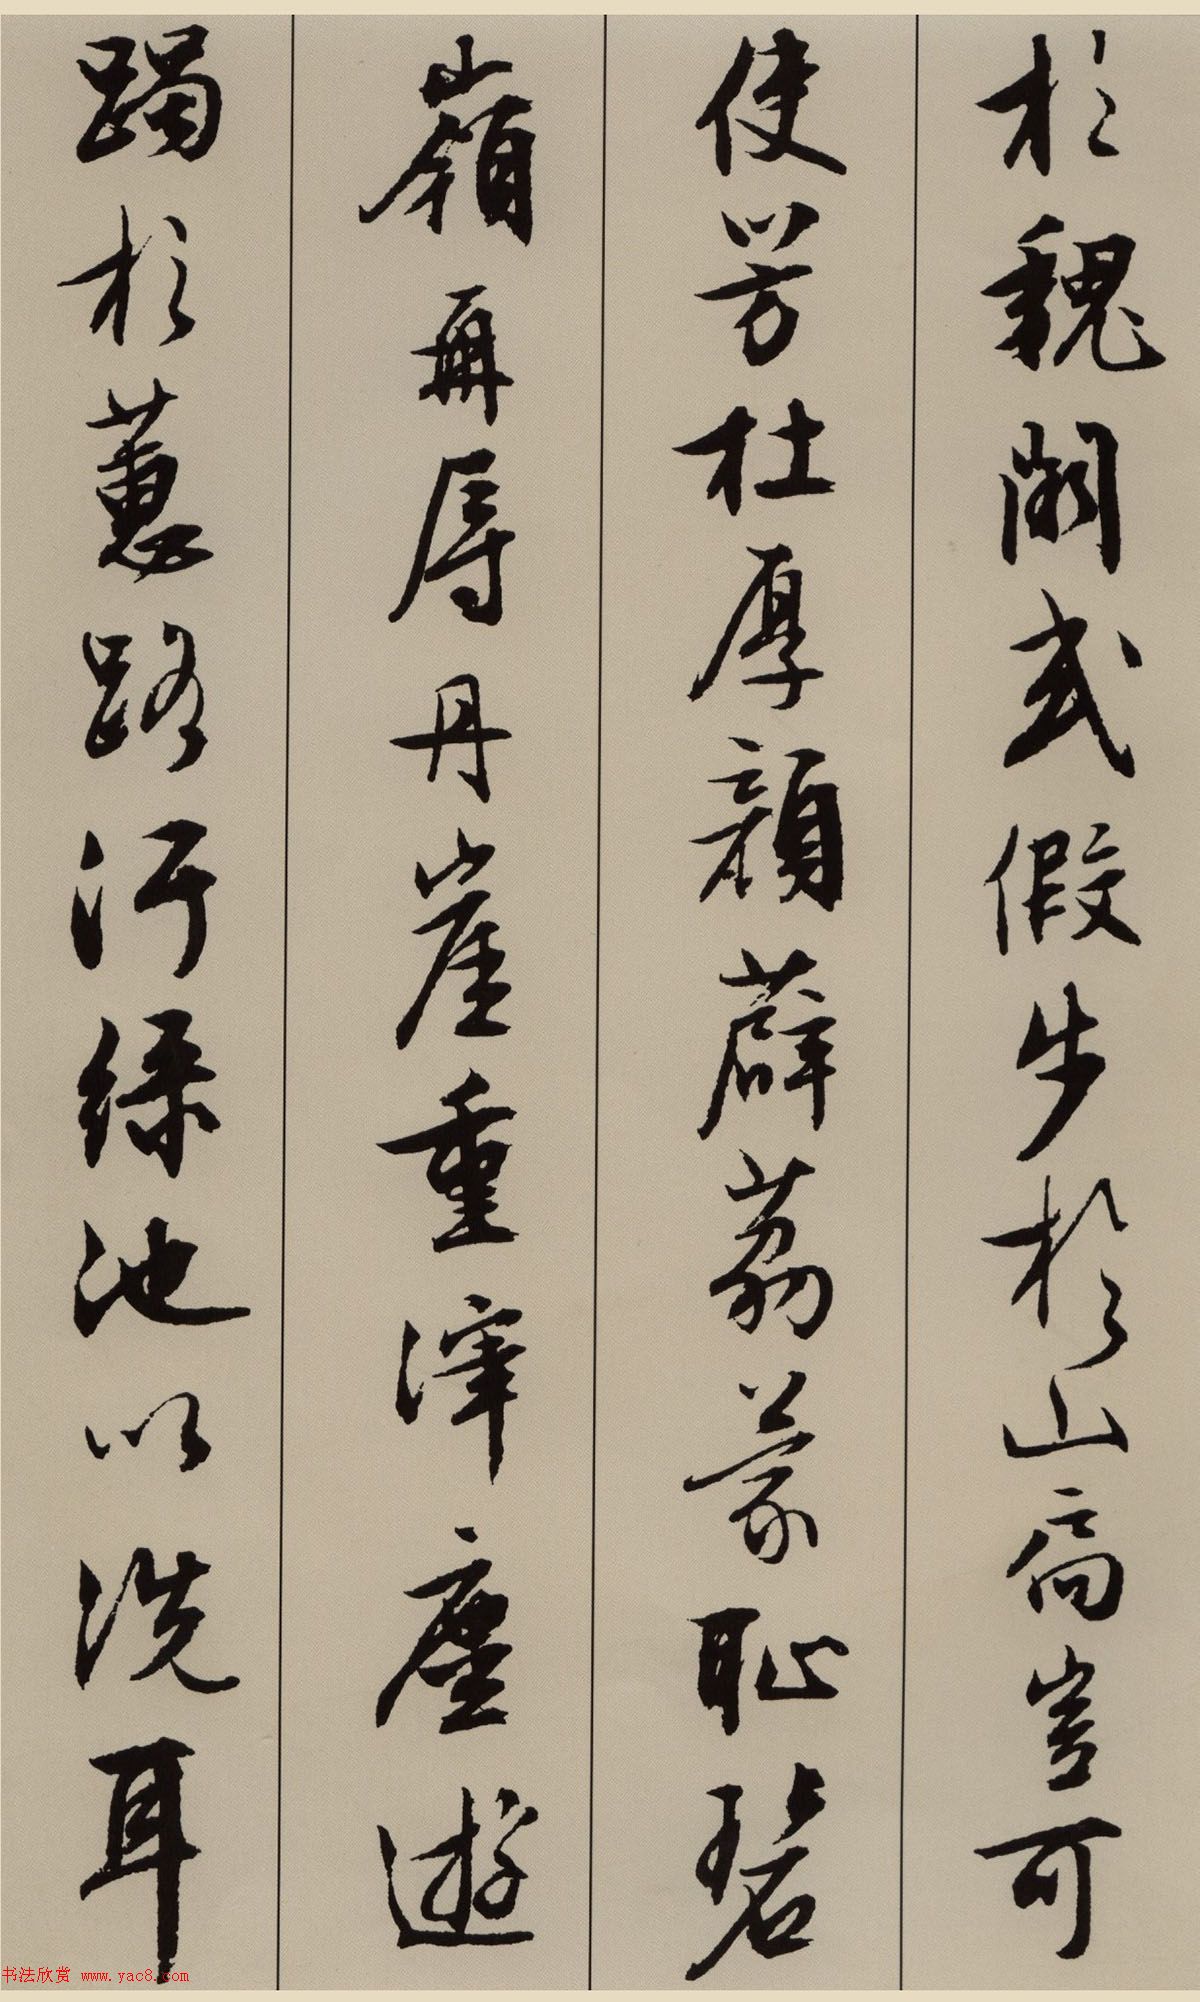 於魏闕或假步於山扃豈可
使芳杜厚顔薜荔蒙恥碧
嶺再辱丹崖重滓塵遊
躅於蕙路汙緑池以洗耳
书法欣赏 www.yac8.com